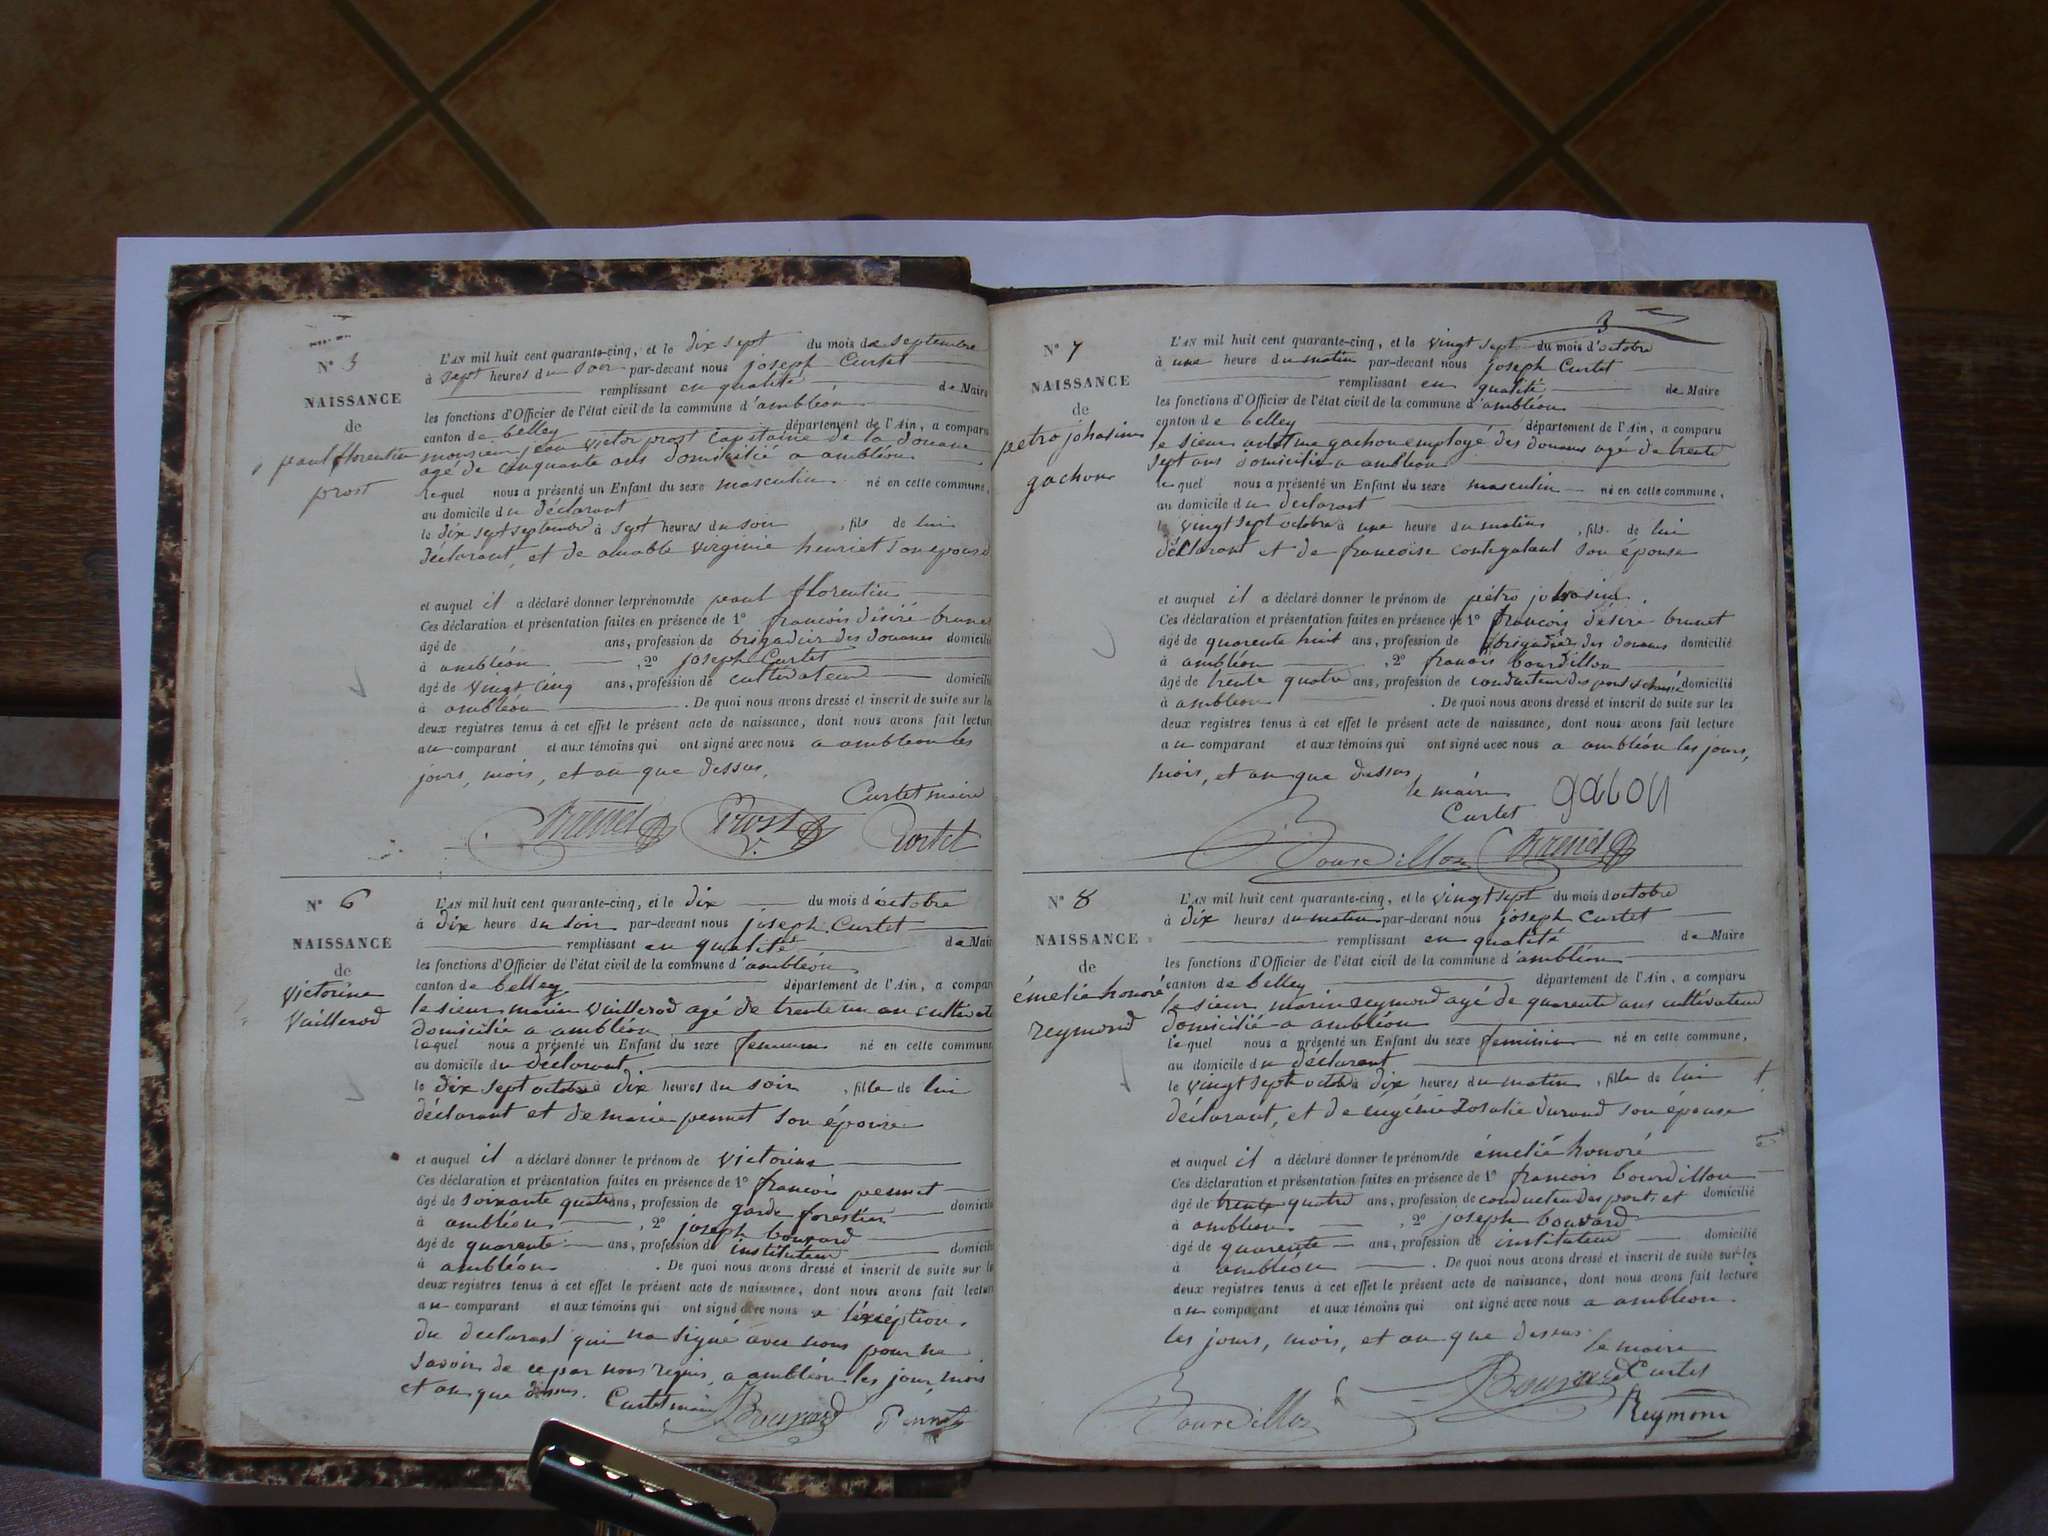 N° 5
NAISSANCE
de
paul florentin
prost
L'AN mil huit cent quarante-cinq, et le dix sept du mois de septembre
à sept heures du soir par-devant nous joseph Curtet
remplissant en qualité de Maire
les fonctions d'Officier de l'état civil de la commune d'ambléon
canton de belley département de l'Ain, a comparu
monsieur jean victor prost capitaine de la douane
agé de cinquante ans domicilié a ambléon
lequel nous a présenté un Enfant du sexe masculin né en cette commune,
au domicile du déclarant
le dix sept septembre à sept heures du soir , fils de lui
déclarant, et de aimable virginie henriet son epouse
et auquel il a déclaré donner les prénoms de paul florentin
Ces déclaration et présentation faites en présence de 1° francois désiré brunet
âgé de ans, profession de brigadier des douanes domicilié
à ambléon , 2° joseph Curtet
âgé de vingt cinq ans, profession de cultivateur domicilié
à ambléon . De quoi nous avons dressé et inscrit de suite sur les
deux registres tenus à cet effet le présent acte de naissance, dont nous avons fait lecture
au comparant et aux témoins qui ont signé avec nous a ambléon les
jours, mois, et an que dessus,
Curtet maire
Brunet Prost Curtet
N° 6
NAISSANCE
de
Victorine
Vuillerod
L'AN mil huit cent quarante-cinq, et le dix du mois d'octobre
à dix heure du soir par-devant nous joseph Curtet
remplissant en qualité de Mair
les fonctions d'Officier de l'état civil de la commune d'ambléon
canton de belley département de l'Ain, a compar
le sieur marin Vuillerod agé de trente un an cultivate
domicilié a ambléon
lequel nous a présenté un Enfant du sexe feminin né en cette commune
au domicile du déclarant
le dix sept octobre à dix heures du soir , fille de lui
déclarant et de marie pennet son épouse
et auquel il a déclaré donner le prénom de victorine
Ces déclaration et présentation faites en présence de 1° francois pennet
âgé de soixante quatre ans, profession de garde forestier domicilié
à ambléon , 2° joseph bouvard
âgé de quarente ans, profession de instituteur domicilié
à ambléon . De quoi nous avons dressé et inscrit de suite sur le
deux registres tenus à cet effet le présent acte de naissance, dont nous avons fait lecture
au comparant et aux témoins qui ont signé avec nous a l'éxcéption
du declarant qui na signé avec nous pour ne
savoir de ce par nous requis, a ambléon les jour, mois
et an que dessus. Curtet maire Bouvard Pennet
3
N° 7
NAISSANCE
de
petro johasim
gachon
L'AN mil huit cent quarante-cinq, et le vingt sept du mois d'octobre
à une heure du matin par-devant nous joseph Curtet
remplissant en qualité de Maire
les fonctions d'Officier de l'état civil de la commune d'ambléon
canton de belley département de l'Ain, a comparu
le sieur gachon employé des douanes agé de trente
sept ans domicilié a ambléon
lequel nous a présenté un Enfant du sexe masculin né en cette commune,
au domicile du déclarant
le vingt sept octobre à une heure du matin , fils de lui
déclarant et de francoise son épouse
et auquel il a déclaré donner le prénom de pétro johasim
Ces déclaration et présentation faites en présence de 1° françois désiré brunet
âgé de quarente huit ans, profession de brigadier des douanes domicilié
à ambléon , 2° francois bourdillon
âgé de trente quatre ans, profession de conducteur des ponts et domicilié
à ambléon . De quoi nous avons dressé et inscrit de suite sur les
deux registres tenus à cet effet le présent acte de naissance, dont nous avons fait lecture
au comparant et aux témoins qui ont signé avec nous a ambléon les jours,
mois, et an que dessus
le maire
Curtet
Bourdillon Brunet
N° 8
NAISSANCE
de
émelié honoré
reymond
L'AN mil huit cent quarante-cinq, et le vingt sept du mois d'octobre
à dix heures du matin par-devant nous joseph Curtet
remplissant en qualité de Maire
les fonctions d'Officier de l'état civil de la commune d'ambléon
canton de belley département de l'Ain, a comparu
le sieur marin reymond agé de quarente ans cultivateur
domicilié a ambléon
lequel nous a présenté un Enfant du sexe feminin né en cette commune,
au domicile du déclarant
le vingt sept octob à dix heures du matin , fille de lui
déclarant, et de eugénie rosalie durand son épouse
et auquel il a déclaré donner le prénoms de émelié honoré
Ces déclaration et présentation faites en présence de 1° francois bourdillon
âgé de trente quatre ans, profession de conducteur des ponts et domicilié
à ambléon , 2° joseph bouvard
âgé de quarente ans, profession de instituteur domicilié
à ambléon . De quoi nous avons dressé et inscrit de suite sur les
deux registres tenus à cet effet le présent acte de naissance, dont nous avons fait lecture
au comparant et aux témoins qui ont signé avec nous a ambléon.
les jours, mois, et an que dessus
le maire
Bouvard Curtet
Bourdillon Reymond